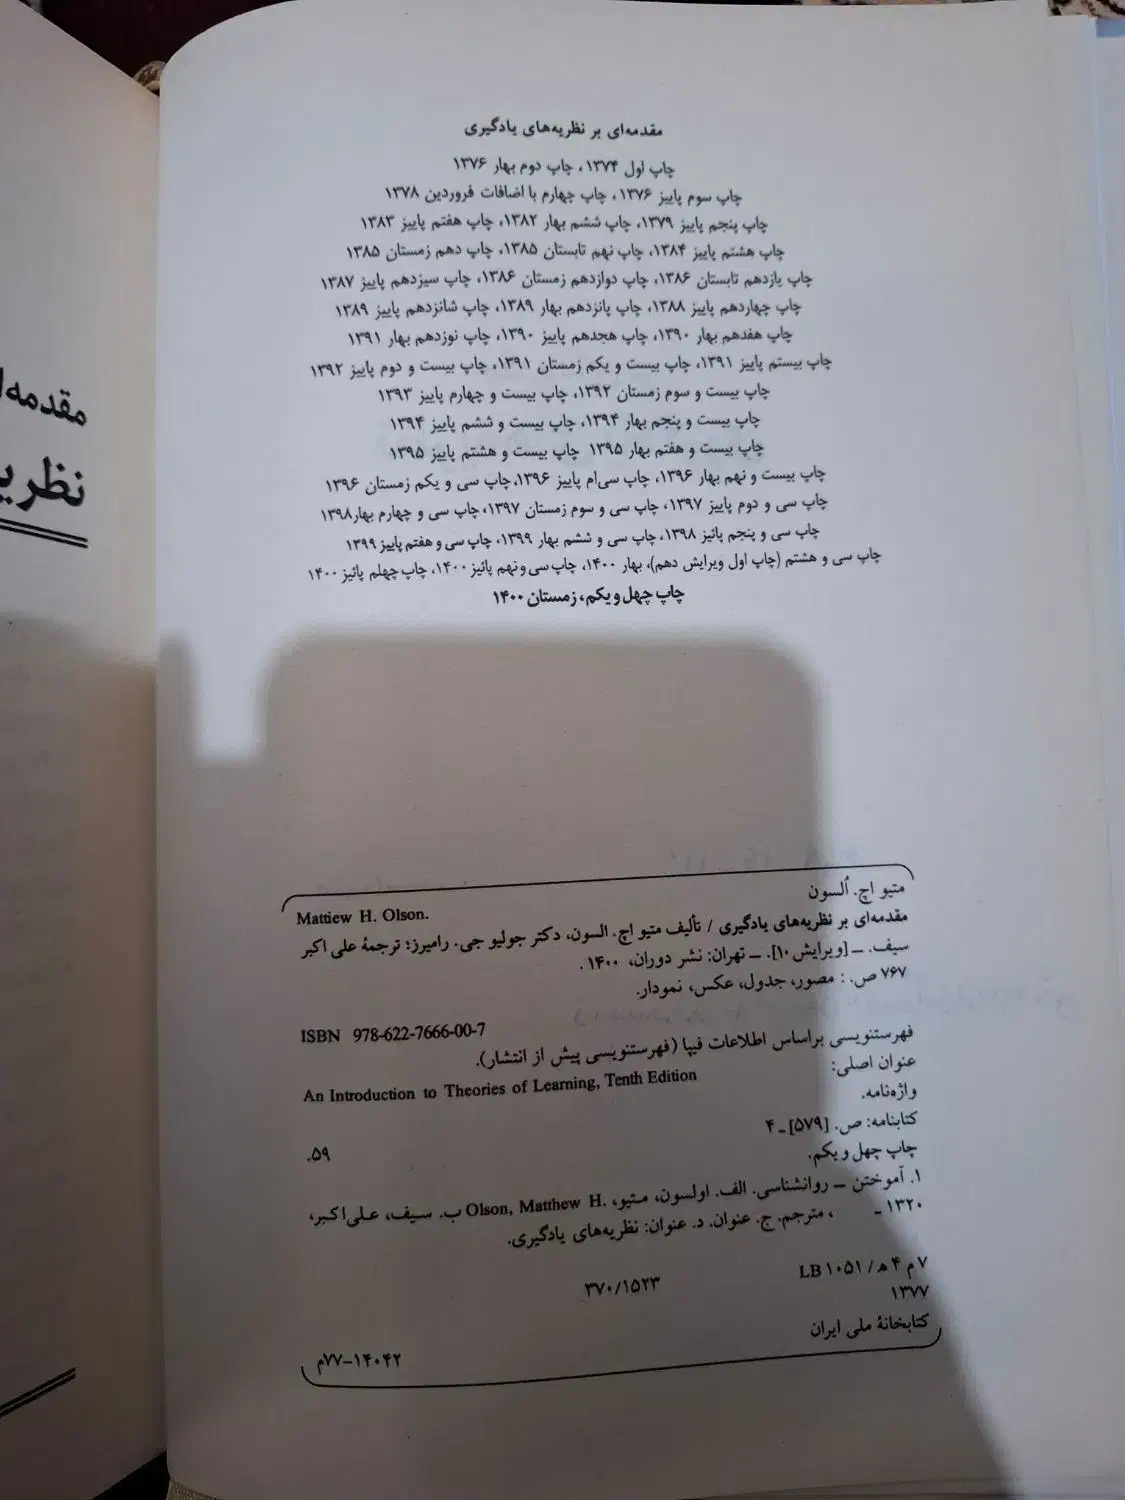 مقدمه‌ای بر نظریه‌های یادگیری
چاپ اول ۱۳۷۴، چاپ دوم بهار ۱۳۷۶
چاپ سوم پاییز ۱۳۷۶، چاپ چهارم با اضافات فروردین ۱۳۷۸
چاپ پنجم پاییز ۱۳۷۹، چاپ ششم بهار ۱۳۸۲، چاپ هفتم پاییز ۱۳۸۳
چاپ هشتم پاییز ۱۳۸۴، چاپ نهم تابستان ۱۳۸۵، چاپ دهم زمستان ۱۳۸۵
چاپ یازدهم تابستان ۱۳۸۶، چاپ دوازدهم زمستان ۱۳۸۶، چاپ سیزدهم پاییز ۱۳۸۷
چاپ چهاردهم پاییز ۱۳۸۸، چاپ پانزدهم بهار ۱۳۸۹، چاپ شانزدهم پاییز ۱۳۸۹
چاپ هفدهم بهار ۱۳۹۰، چاپ هجدهم پاییز ۱۳۹۰، چاپ نوزدهم بهار ۱۳۹۱
چاپ بیستم پاییز ۱۳۹۱، چاپ بیست و یکم زمستان ۱۳۹۱، چاپ بیست و دوم پاییز ۱۳۹۲
چاپ بیست و سوم زمستان ۱۳۹۲، چاپ بیست و چهارم پاییز ۱۳۹۳
چاپ بیست و پنجم بهار ۱۳۹۴، چاپ بیست و ششم پاییز ۱۳۹۴
چاپ بیست و هفتم بهار ۱۳۹۵ چاپ بیست و هشتم پاییز ۱۳۹۵
چاپ بیست و نهم بهار ۱۳۹۶، چاپ سی‌ام پاییز ۱۳۹۶، چاپ سی و یکم زمستان ۱۳۹۶
چاپ سی و دوم پاییز ۱۳۹۷، چاپ سی و سوم زمستان ۱۳۹۷، چاپ سی و چهارم بهار۱۳۹۸
چاپ سی و پنجم پائیز ۱۳۹۸، چاپ سی و ششم بهار ۱۳۹۹، چاپ سی و هفتم پاییز ۱۳۹۹
چاپ سی و هشتم (چاپ اول ویرایش دهم)، بهار ۱۴۰۰، چاپ سی و نهم پائیز ۱۴۰۰، چاپ چهلم پائیز ۱۴۰۰
چاپ چهل و یکم، زمستان ۱۴۰۰
متیو اچ. اُلسون
Mattiew H. Olson.
مقدمه‌ای بر نظریه‌های یادگیری / تألیف متیو اچ. السون، دکتر جولیو جی. رامیرز؛ ترجمۀ علی اکبر
سیف. ـ [ویرایش ۱۰]. ـ تهران: نشر دوران، ۱۴۰۰.
۷۶۷ ص. : مصور، جدول، عکس، نمودار.
ISBN 978-622-7666-00-7
فهرستنویسی براساس اطلاعات فیپا (فهرستنویسی پیش از انتشار).
عنوان اصلی:
An Introduction to Theories of Learning, Tenth Edition
واژه‌نامه.
کتابنامه: ص. [۵۷۹] ـ ۴
۵۹.
چاپ چهل و یکم.
۱. آموختن ـ روانشناسی. الف. اولسون، متیو، Olson, Matthew H. ب. سیف، علی‌اکبر،
۱۳۲۰ ـ ، مترجم. ج. عنوان. د. عنوان: نظریه‌های یادگیری.
۷ م ۴ هـ / LB ۱۰۵۱
۱۳۷۷
۳۷۰/۱۵۲۳
کتابخانۀ ملی ایران
۱۴۰۴۲–۷۷م
مقدمه‌ا
نظری